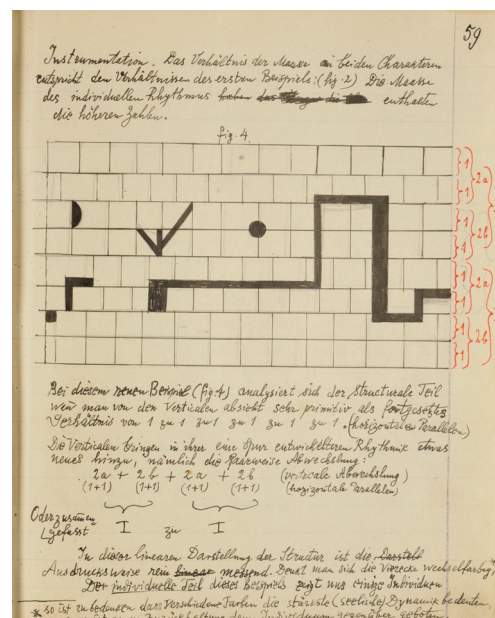 59
Instrumentation. Das Verhältnis der Maasse in beiden Charakteren
entspricht den Verhältnissen des ersten Beispiels: (fig 2) Die Maasse
des individuellen Rhythmus haben das die enthalten
die höheren Zahlen.
fig. 4.
1
1
2a
1
1
2b
1
1
2a
1
1
2b
Bei diesem neuen Beispiel (fig 4) analysiert sich der structurale Teil
wenn man von den Verticalen absieht sehr primitiv als fortgesetztes
Verhältnis von 1 zu 1 zu 1 zu 1 zu 1 zu 1 (horizontale Parallelen)
Die Verticalen bringen in ihrer eine Spur entwickelteren Rhythmik etwas
neues hinzu, nämlich die paarweise Abwechslung:
2a + 2b + 2a + 2b (verticale Abwechslung)
(1+1) (1+1) (1+1) (1+1) (horizontale Parallelen)
Oder zusammen
gefasst I zu I
In dieser linearen Darstellung der Structur ist die Darstell
Ausdrucksweise rein linear messend. Denkt man sich die Vierecke wechselfarbig,*
Der individuelle Teil dieses Beispiels zeigt uns einige Individuen
* so ist zu bedenken dass verschiedene Farben die stärkste (seelische) Dynamik bedeuten,
dem Individuum gegenüber geboten